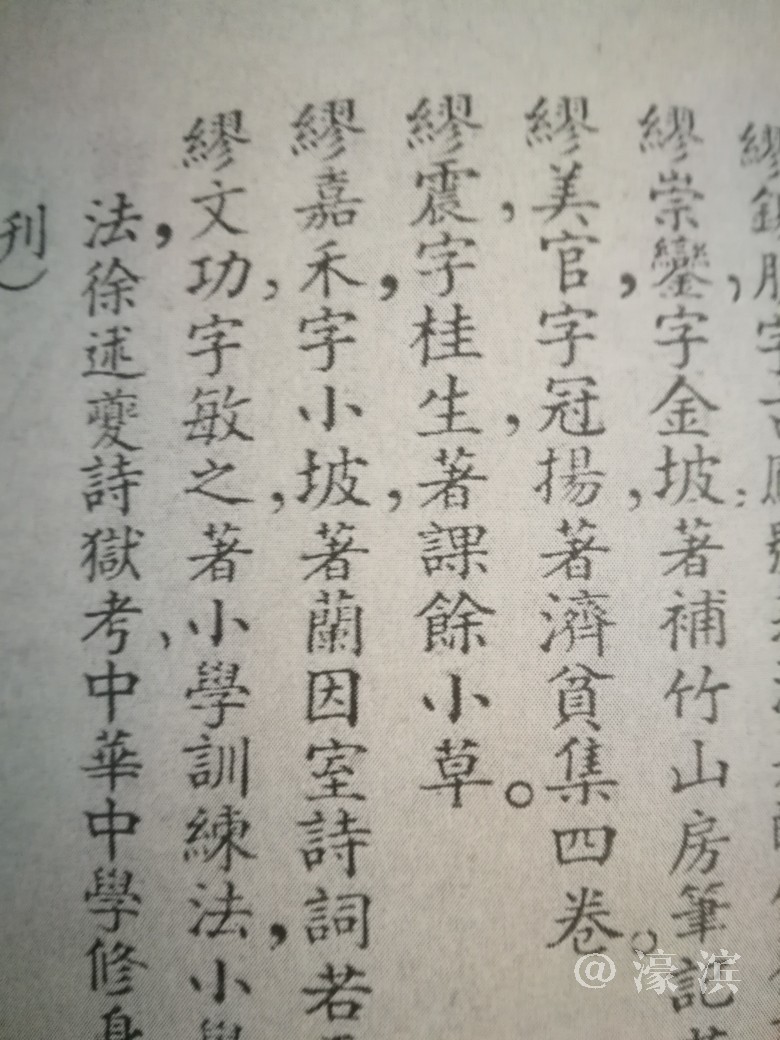 字
繆崇鑾，字金坡；著補竹山房筆記
繆美官，字冠揚，著濟貧集四卷。
繆震，字桂生，著課餘小草。
繆嘉禾，字小坡，著蘭因室詩詞若
繆文功，字敏之，著小學訓練法，小學
法，徐述夔詩獄考，中華中學修身
刊）
@濠滨